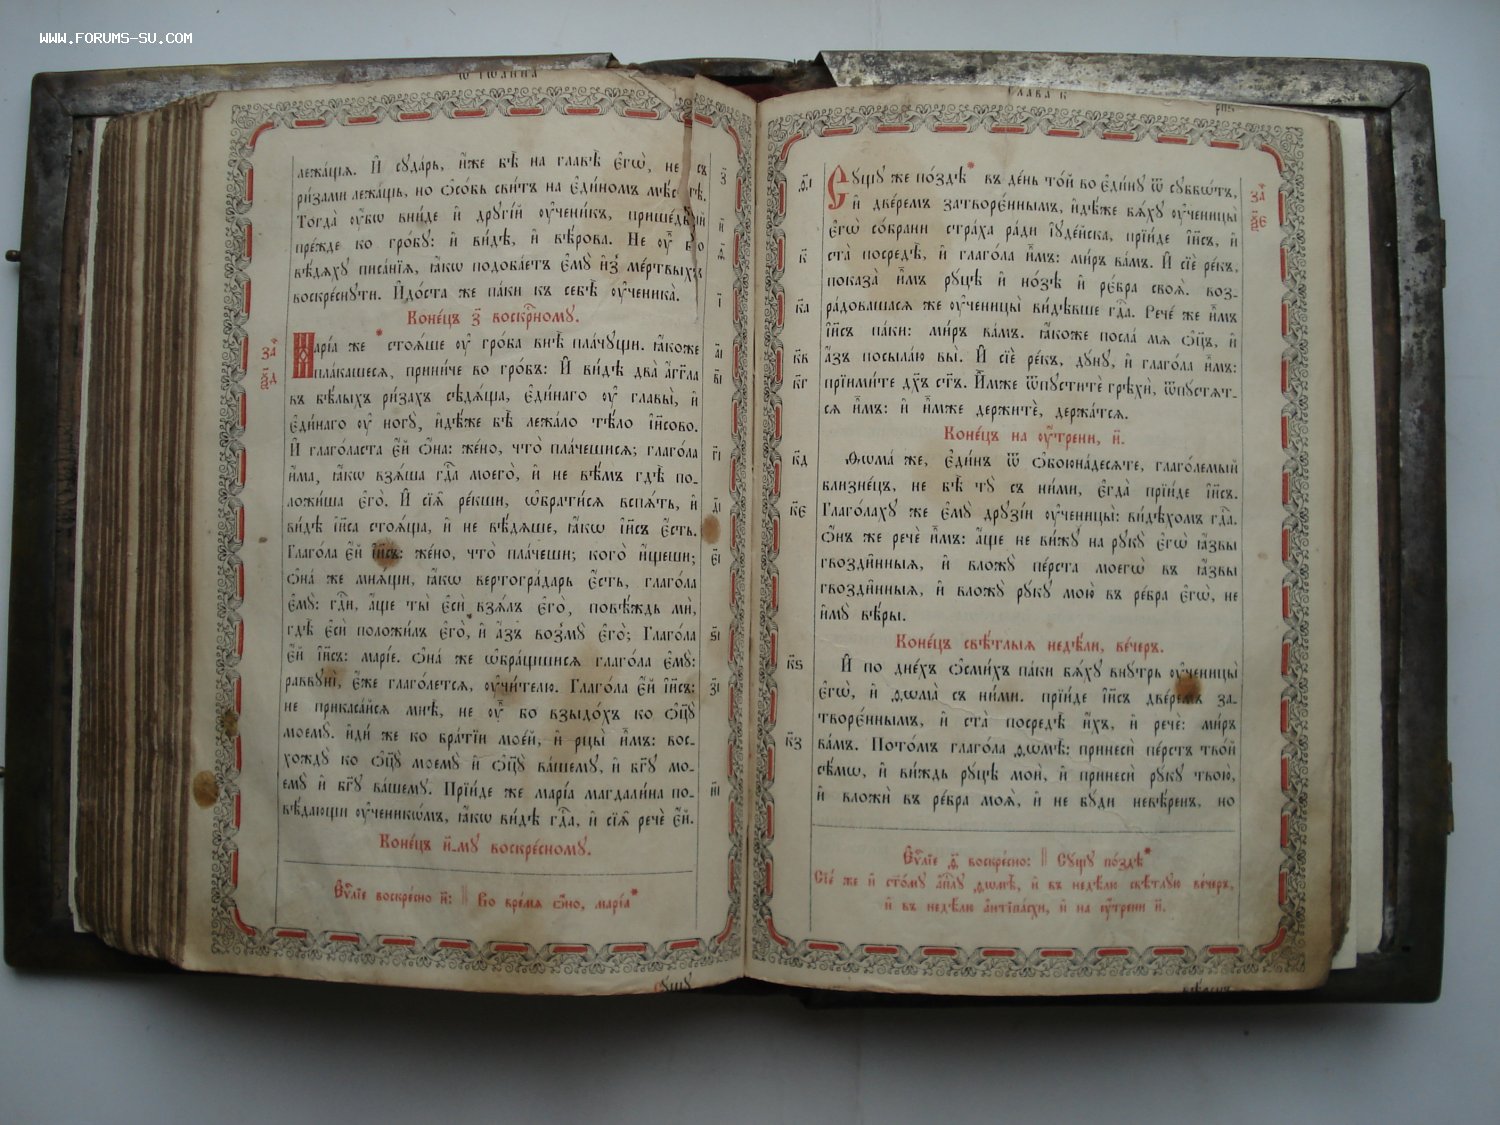 WWW.FORUMS-SU.COM
Ѿ Іѡанна
лежа́щѧ. И҆ сꙋда́рь, и҆́же бѣ̀ на главѣ̀ є҆гѡ̀, не съ
ри́зами лежа́щь, но ѻ҆со́бь сви́тъ на є҆ди́номъ мѣ́стѣ.
Тогда̀ ᲂу҆̀бѡ вни́де и҆ дрꙋгі́й ᲂу҆чени́къ, прише́дый
пре́жде ко гро́бꙋ: и҆ ви́дѣ, и҆ вѣ́рова. Не ᲂу҆̀ бо
вѣ́дѧхꙋ писа́нїѧ, ꙗ҆́кѡ подоба́етъ є҆мꙋ̀ и҆з̾ ме́ртвыхъ
воскре́снꙋти. И҆до́ста же па́ки къ себѣ̀ ᲂу҆чени́ка.
Коне́цъ з҃ воскрⷭ҇номꙋ.
Марі́а же * стоѧ́ше ᲂу҆ гро́ба внѣ̀ пла́чꙋщи. ꙗ҆́коже
пла́кашесѧ, прини́че во гро́бъ: И҆ ви́дѣ два̀ а҆́гг҃ла
въ бѣ́лыхъ ри́захъ сѣдѧ́ща, є҆ди́наго ᲂу҆ главы̀, и҆
є҆ди́наго ᲂу҆ ногꙋ̀, и҆дѣ́же бѣ̀ лежа́ло тѣ́ло і҆и҃сово.
И҆ глаго́ласта є҆́й ѻ҆́на: же́но, что̀ пла́чешисѧ; глаго́ла
и҆́ма, ꙗ҆́кѡ взѧ́ша гдⷭ҇а моего̀, и҆ не вѣ́мъ гдѣ̀ по-
ложи́ша є҆го̀. И҆ сїѧ̑ ре́кши, ѡ҆брати́сѧ вспѧ́ть, и҆
ви́дѣ і҆и҃са стоѧ́ща, и҆ не вѣ́дѧше, ꙗ҆́кѡ і҆и҃съ є҆́сть.
Глаго́ла є҆́й і҆и҃съ: же́но, что̀ пла́чеши; кого̀ и҆́щеши;
ѻ҆на́ же мнѧ́щи, ꙗ҆́кѡ вертогра́дарь є҆́сть, глаго́ла
є҆мꙋ̀: гдⷭ҇и, а҆́ще ты̀ є҆сѝ взѧ́лъ є҆го̀, повѣ́ждь мѝ,
гдѣ̀ є҆сѝ положи́лъ є҆го̀, и҆ а҆́зъ возмꙋ̀ є҆го̀; Глаго́ла
є҆́й і҆и҃съ: марі́е. Ѻ҆на́ же ѡ҆бра́щшисѧ глаго́ла є҆мꙋ̀:
раввꙋні̀, є҆́же глаго́летсѧ, ᲂу҆чи́телю. Глаго́ла є҆́й і҆и҃съ:
не прикаса́йсѧ мнѣ̀, не ᲂу҆̀ бо взыдо́хъ ко ѻ҆ц҃ꙋ̀
моемꙋ̀. и҆ди́ же ко бра́тїи мое́й, и҆ рцы̀ и҆̀мъ: вос-
хождꙋ̀ ко ѻ҆ц҃ꙋ̀ моемꙋ̀ и҆ ѻ҆ц҃ꙋ̀ ва́шемꙋ, и҆ бг҃ꙋ мо-
емꙋ̀ и҆ бг҃ꙋ ва́шемꙋ. Прїи́де же марі́а магдали́на по-
вѣ́дающи ᲂу҆ченикѡ́мъ, ꙗ҆́кѡ ви́дѣ гдⷭ҇а, и҆ сїѧ̑ речѐ є҆́й.
Коне́цъ и҃-мꙋ воскре́сномꙋ.
Є҆ѵⷢ҇лїе воскре́сно и҃: Во вре́мѧ ѻ҆́но, марі́а *
сꙋщꙋ
за҄ ѯ҃д
з҃
и҃
ѳ҃
і҃
а҃і
в҃і
г҃і
д҃і
є҃і
ѕ҃і
з҃і
и҃і
Глава к҃
Сꙋ́щꙋ же по́здѣ * въ де́нь то́й во є҆ди́нꙋ ѿ сꙋббѡ́тъ,
и҆ две́ремъ затворє́ннымъ, и҆дѣ́же бѧ́хꙋ ᲂу҆ченицы̀
є҆гѡ̀ со́брани стра́ха ра́ди і҆ꙋде́йска, прїи́де і҆и҃съ, и҆
ста̀ посредѣ̀, и҆ глаго́ла и҆̀мъ: ми́ръ ва́мъ. И҆ сїѐ ре́къ,
показа̀ и҆̀мъ рꙋ́цѣ и҆ но́зѣ и҆ ре́бра своѧ̑. воз-
ра́довашасѧ же ᲂу҆ченицы̀ ви́дѣвше гдⷭ҇а. Рече́ же и҆̀мъ
і҆и҃съ па́ки: ми́ръ ва́мъ. ꙗ҆́коже посла́ мѧ ѻ҆ц҃ъ, и҆
а҆́зъ посыла́ю вы̀. И҆ сїѐ ре́къ, дꙋ́нꙋ, и҆ глаго́ла и҆̀мъ:
прїими́те дх҃ъ ст҃ъ. И҆̀мже ѿпꙋститѐ грѣхѝ, ѿпꙋстѧ́т-
сѧ и҆̀мъ: и҆ и҆̀мже держитѐ, держа́тсѧ.
Коне́цъ на ᲂу҆́трени, и҃.
Ѳѡма́ же, є҆ди́нъ ѿ ѻ҆боюна́десѧте, глаго́лемый
близне́цъ, не бѣ̀ тꙋ̀ съ ни́ми, є҆гда̀ прїи́де і҆и҃съ.
Глаго́лахꙋ же є҆мꙋ̀ дрꙋзі́и ᲂу҆ченицы̀: ви́дѣхомъ гдⷭ҇а.
Ѻ҆́нъ же речѐ и҆̀мъ: а҆́ще не ви́жꙋ на рꙋкꙋ̀ є҆гѡ̀ ꙗ҆́звы
гвозди̑нныѧ, и҆ вложꙋ̀ пе́рста моегѡ̀ въ ꙗ҆́звы
гвозди̑нныѧ, и҆ вложꙋ̀ рꙋ́кꙋ мою̀ въ ре́бра є҆гѡ̀, не
и҆мꙋ̀ вѣ́ры.
Коне́цъ свѣ́тлыѧ недѣ́ли, ве́черъ.
И҆ по дне́хъ ѻ҆сми́хъ па́ки бѧ́хꙋ внꙋ́трь ᲂу҆ченицы̀
є҆гѡ̀, и҆ ѳѡма̀ съ ни́ми. прїи́де і҆и҃съ две́ремъ за-
творє́ннымъ, и҆ ста̀ посредѣ̀ и҆́хъ, и҆ речѐ: ми́ръ
ва́мъ. Пото́мъ глаго́ла ѳѡмѣ̀: принесѝ пе́рстъ тво́й
сѣ́мѡ, и҆ ви́ждь рꙋ́цѣ моѝ, и҆ принесѝ рꙋ́кꙋ твою̀,
и҆ вложѝ въ ре́бра моѧ̑, и҆ не бꙋ́ди невѣ́ренъ, но
Є҆ѵⷢ҇лїе ѳ҃ воскре́сно: Сꙋ́щꙋ по́здѣ *
Сїе́ же и҆ ст҃о́мꙋ а҆пⷭ҇лꙋ ѳѡмѣ̀, и҆ въ недѣ́лю свѣ́тлꙋю ве́черъ,
и҆ въ недѣ́лю а҆нтїпа́схи, и҆ на ᲂу҆́трени и҃.
ѳ҃і
к҃
к҃а
к҃в
к҃г
к҃д
к҃є
к҃ѕ
к҃з
за҄ ѯ҃є
вѣ́ренъ